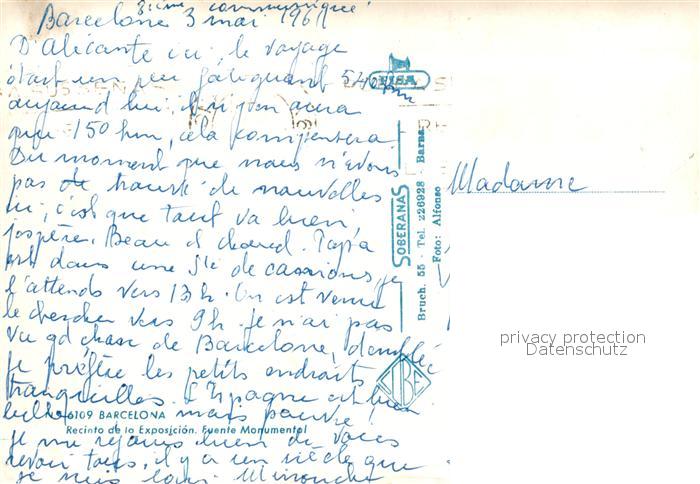 3ième communiqué!
Barcelone 3 mai 196
D'Alicante ici, le voyage
était un peu fatiguant 540 km
aujourd'hui, il n'y en aura
que 150 km, cela compensera
Du moment que nous n'avons
pas trouvé de nouvelles
ici, c'est que tout va bien
j'espère. Beau et chaud. Papa
est dans une Sté de camions, je
l'attends vers 13 h. On est venu
le chercher vers 9h. Je n'ai pas
vu gd chose de Barcelone,
je préfère les petits endroits
tranquilles. L'Espagne est bien
belle mais pauvre!
6109 BARCELONA
Recinto de la Exposición. Fuente Monumental
Je me réjouis bien de vous
revoir tous, il y a un siècle que
je suis Minouche
FISA
SOBERANAS
Bruch. 55 - Tel. 226928 - Barna.
Foto: Alfonso
IBE
Madame
privacy protection
Datenschutz